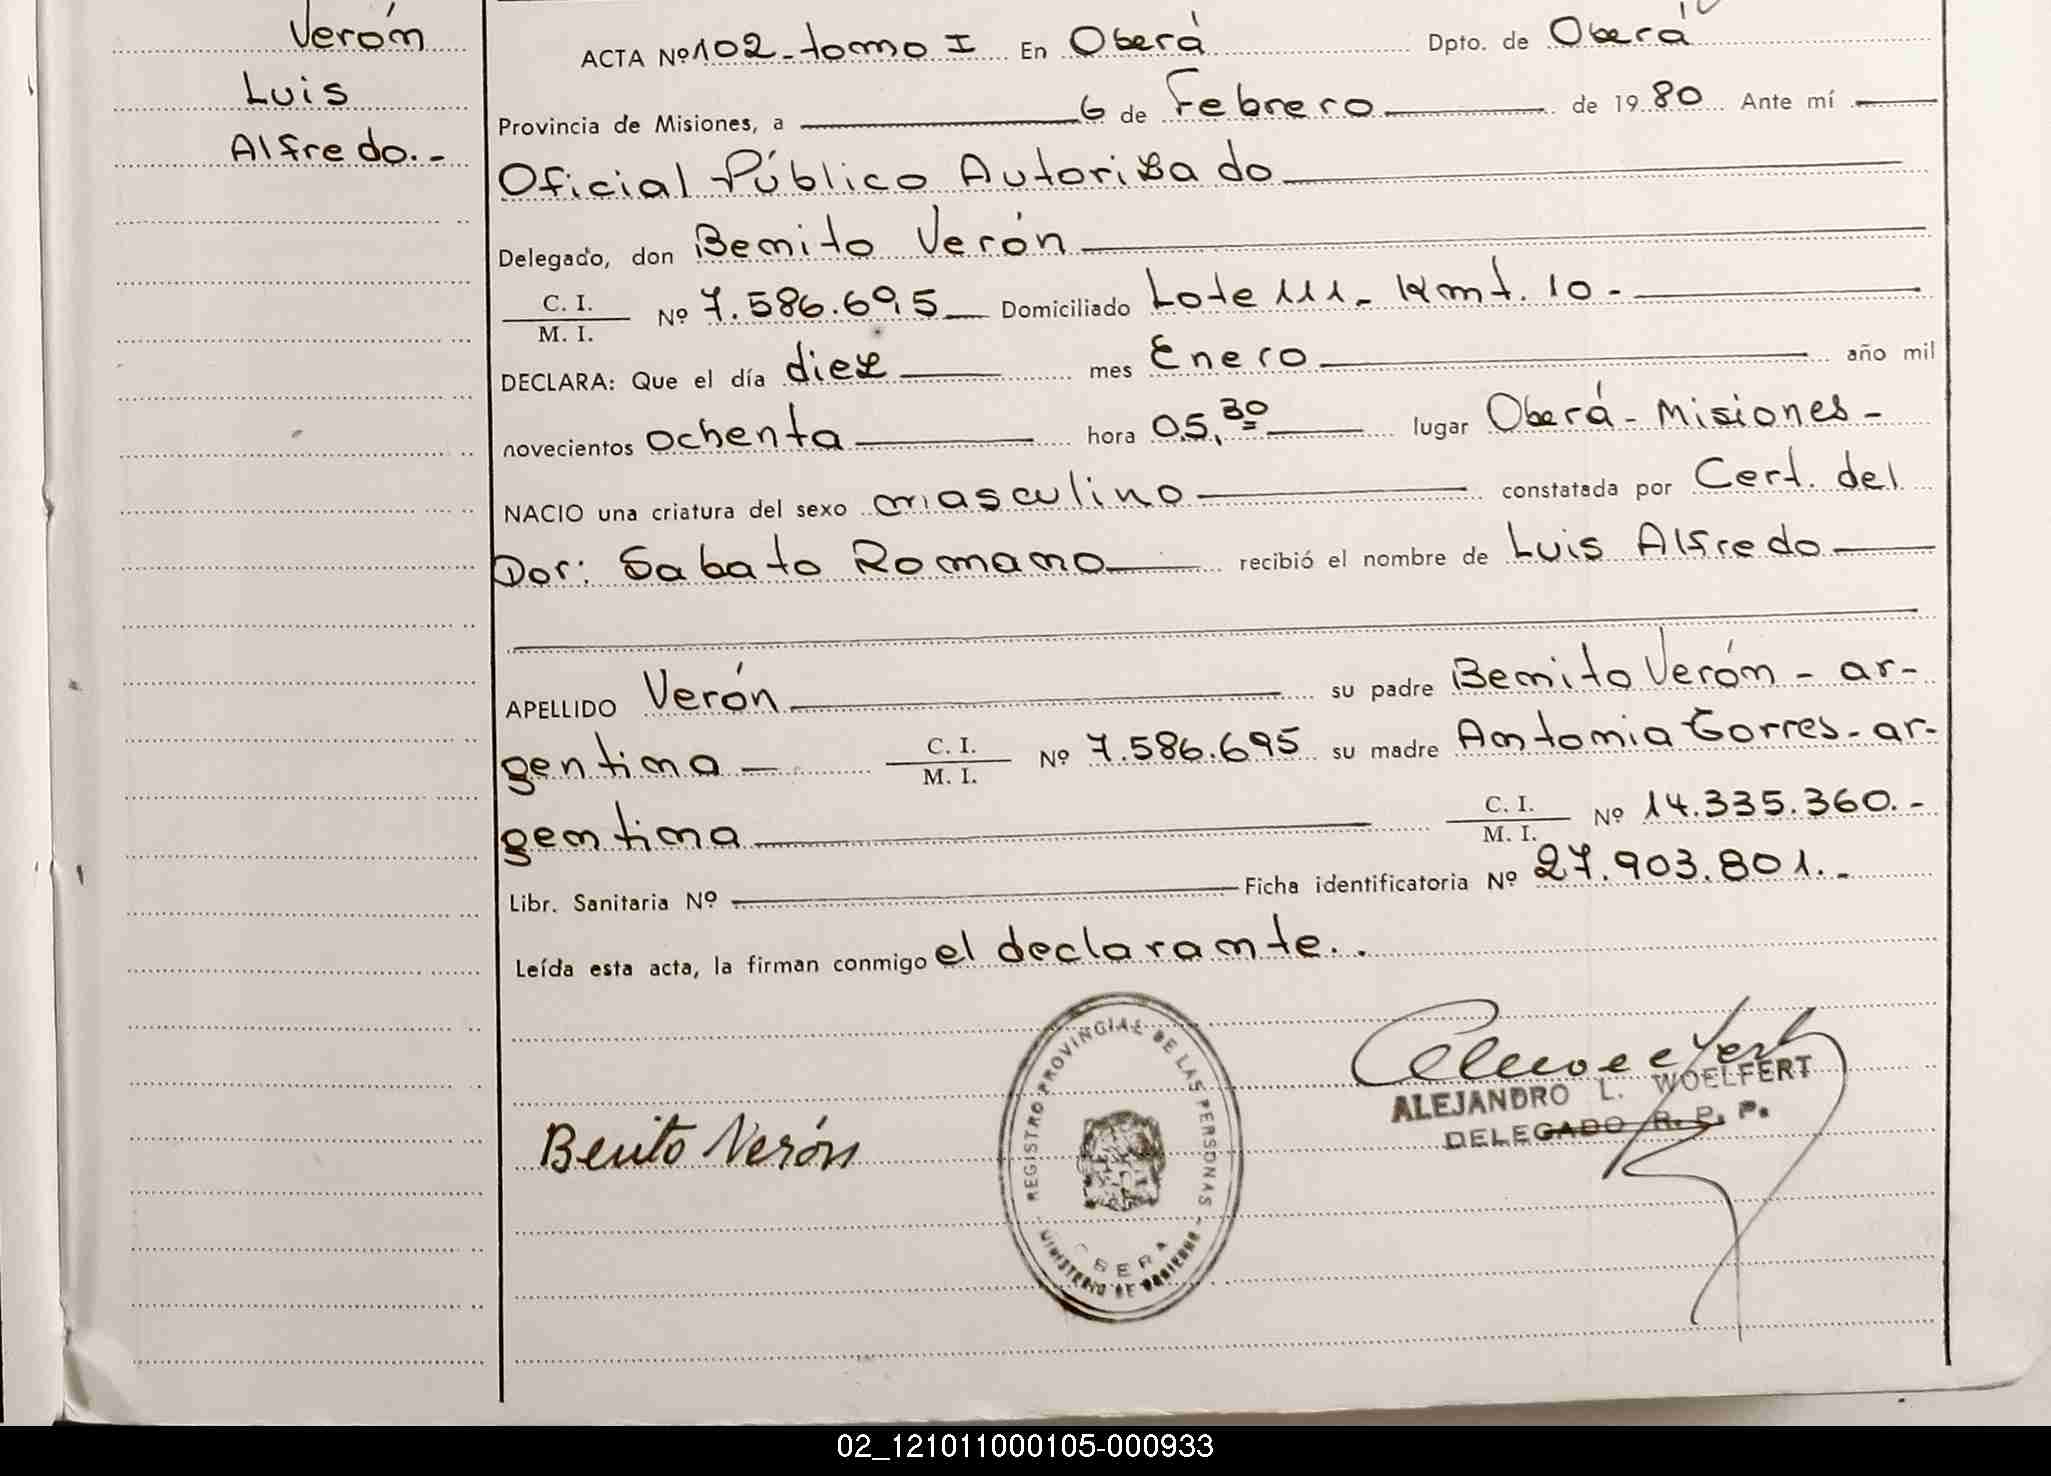 Verón
Luis
Alfredo.-
ACTA Nº 102-tomo I En Oberá Dpto. de Oberá
Provincia de Misiones, a 6 de Febrero de 19 80 Ante mí
Oficial Público Autorizado
Delegado, don Benito Verón
C. I.
M. I. Nº 7.586.695 Domiciliado Lote 111- Kmt. 10-
DECLARA: Que el día diez mes Enero año mil
novecientos ochenta hora 05,30 lugar Oberá - Misiones-
NACIO una criatura del sexo masculino constatada por Cert. del
Dor: Sabato Romano recibió el nombre de Luis Alfredo
APELLIDO Verón su padre Benito Verón - ar-
gentina C. I.
M. I. Nº 7.586.695 su madre Antonia Torres-ar-
gentina C. I.
M. I. Nº 14.335.360.-
Libr. Sanitaria Nº Ficha identificatoria Nº 27.903.801.-
Leída esta acta, la firman conmigo el declarante..
Benito Verón
REGISTRO PROVINCIAL DE LAS PERSONAS
OBERA
MINISTERIO DE GOBIERNO
ALEJANDRO L. WOELFERT
DELEGADO R. P. P.
02_121011000105-000933